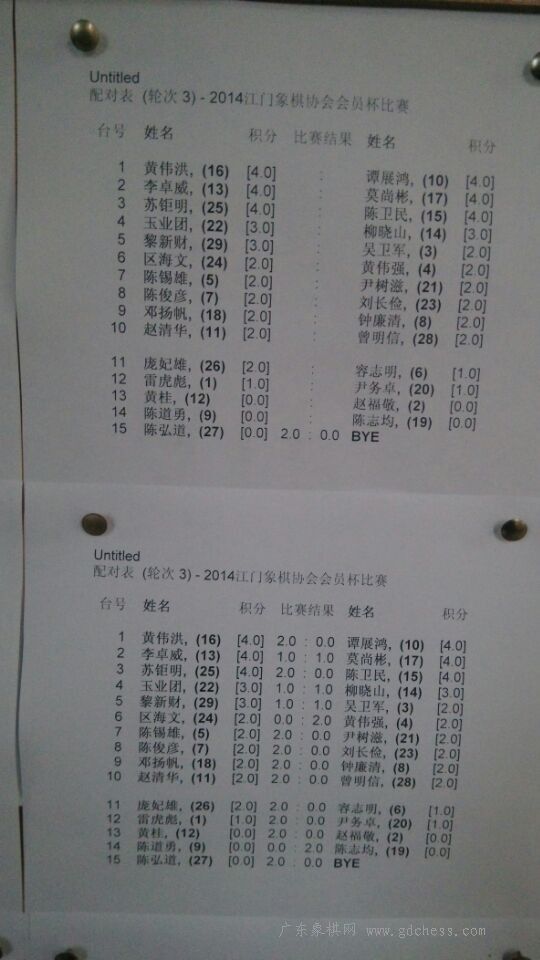 Untitled
配对表 (轮次 3) - 2014江门象棋协会会员杯比赛
台号 姓名 积分 比赛结果 姓名 积分
1 黄伟洪, (16) [4.0] : 谭展鸿, (10) [4.0]
2 李卓威, (13) [4.0] : 莫尚彬, (17) [4.0]
3 苏钜明, (25) [4.0] : 陈卫民, (15) [4.0]
4 玉业团, (22) [3.0] : 柳晓山, (14) [3.0]
5 黎新财, (29) [3.0] : 吴卫军, (3) [2.0]
6 区海文, (24) [2.0] : 黄伟强, (4) [2.0]
7 陈锡雄, (5) [2.0] : 尹树滋, (21) [2.0]
8 陈俊彦, (7) [2.0] : 刘长俭, (23) [2.0]
9 邓扬帆, (18) [2.0] : 钟廉清, (8) [2.0]
10 赵清华, (11) [2.0] : 曾明信, (28) [2.0]
11 庞妃雄, (26) [2.0] : 容志明, (6) [1.0]
12 雷虎彪, (1) [1.0] : 尹务卓, (20) [1.0]
13 黄桂, (12) [0.0] : 赵福敬, (2) [0.0]
14 陈道勇, (9) [0.0] : 陈志均, (19) [0.0]
15 陈弘道, (27) [0.0] 2.0 : 0.0 BYE
Untitled
配对表 (轮次 3) - 2014江门象棋协会会员杯比赛
台号 姓名 积分 比赛结果 姓名 积分
1 黄伟洪, (16) [4.0] 2.0 : 0.0 谭展鸿, (10) [4.0]
2 李卓威, (13) [4.0] 1.0 : 1.0 莫尚彬, (17) [4.0]
3 苏钜明, (25) [4.0] 2.0 : 0.0 陈卫民, (15) [4.0]
4 玉业团, (22) [3.0] 1.0 : 1.0 柳晓山, (14) [3.0]
5 黎新财, (29) [3.0] 1.0 : 1.0 吴卫军, (3) [2.0]
6 区海文, (24) [2.0] 0.0 : 2.0 黄伟强, (4) [2.0]
7 陈锡雄, (5) [2.0] 2.0 : 0.0 尹树滋, (21) [2.0]
8 陈俊彦, (7) [2.0] 2.0 : 0.0 刘长俭, (23) [2.0]
9 邓扬帆, (18) [2.0] 2.0 : 0.0 钟廉清, (8) [2.0]
10 赵清华, (11) [2.0] 2.0 : 0.0 曾明信, (28) [2.0]
11 庞妃雄, (26) [2.0] 2.0 : 0.0 容志明, (6) [1.0]
12 雷虎彪, (1) [1.0] 2.0 : 0.0 尹务卓, (20) [1.0]
13 黄桂, (12) [0.0] 2.0 : 0.0 赵福敬, (2) [0.0]
14 陈道勇, (9) [0.0] 0.0 : 2.0 陈志均, (19) [0.0]
15 陈弘道, (27) [0.0] 2.0 : 0.0 BYE
广东象棋网 www.gdchess.com